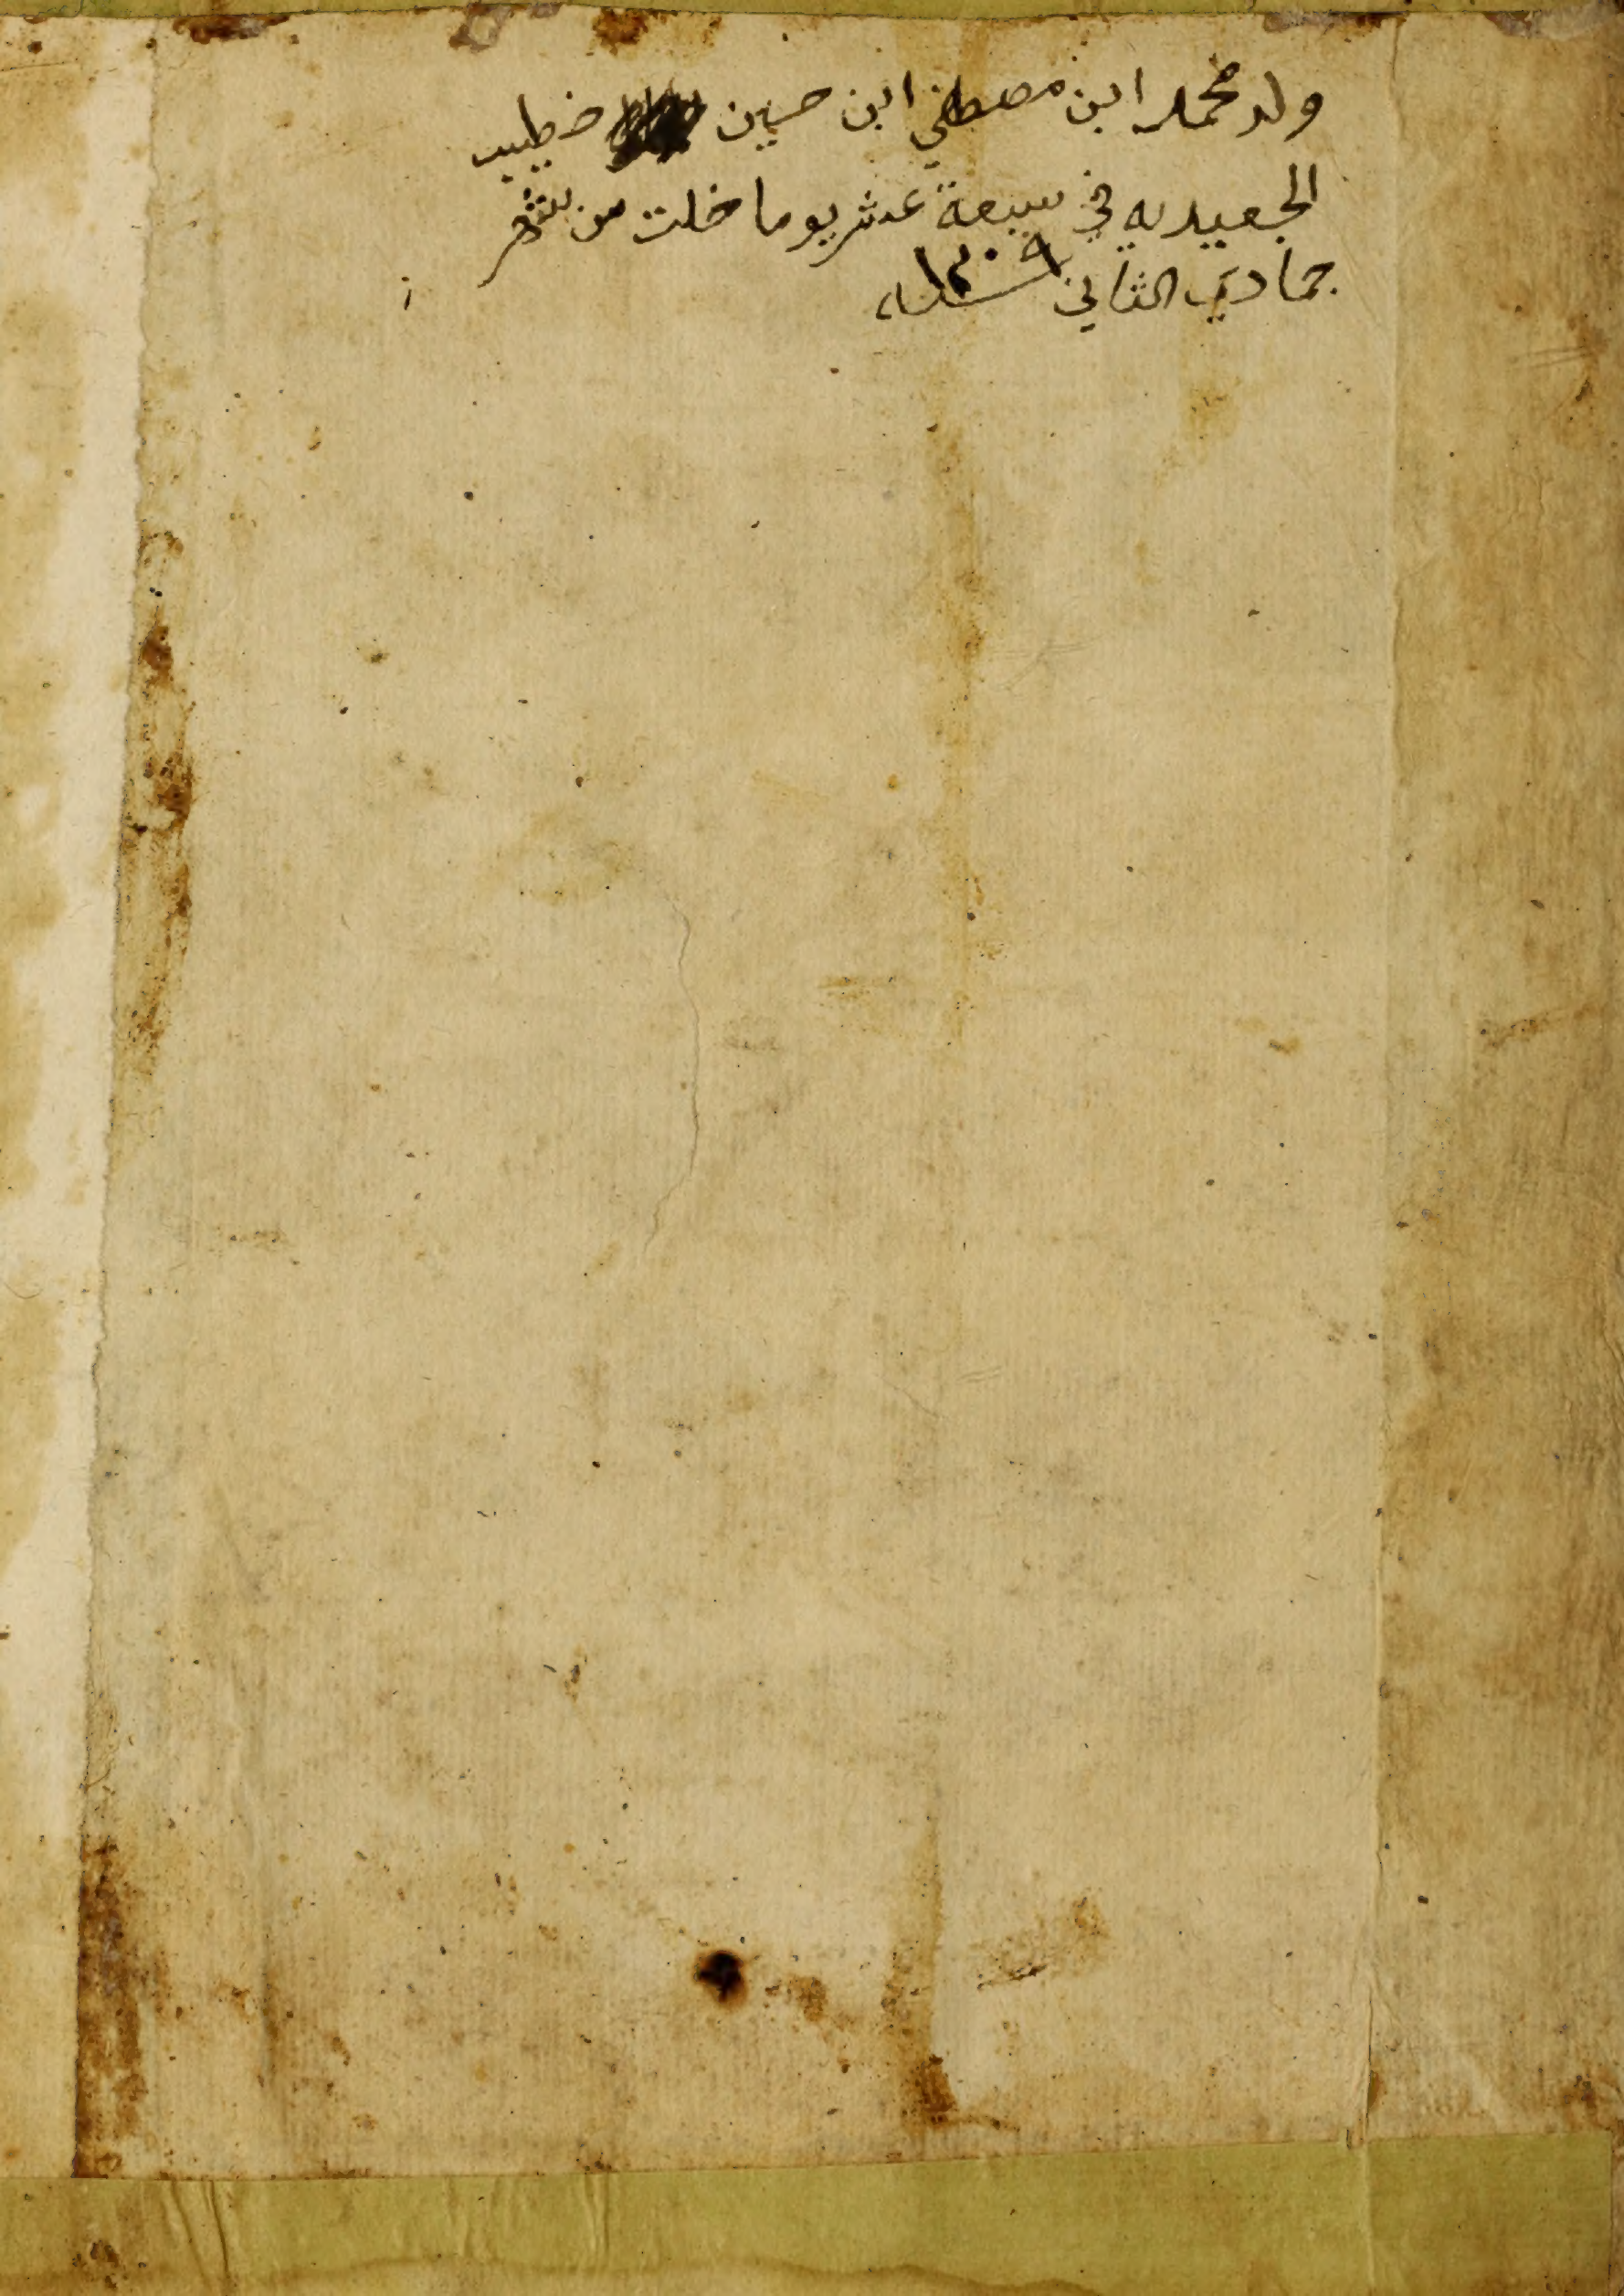 ولد محمد ابن مصطفي ابن حسين خطيب
الجعيديه في سبعة عشر يوما خلت من شهر
جمادي الثاني سنة ١٣٠٩